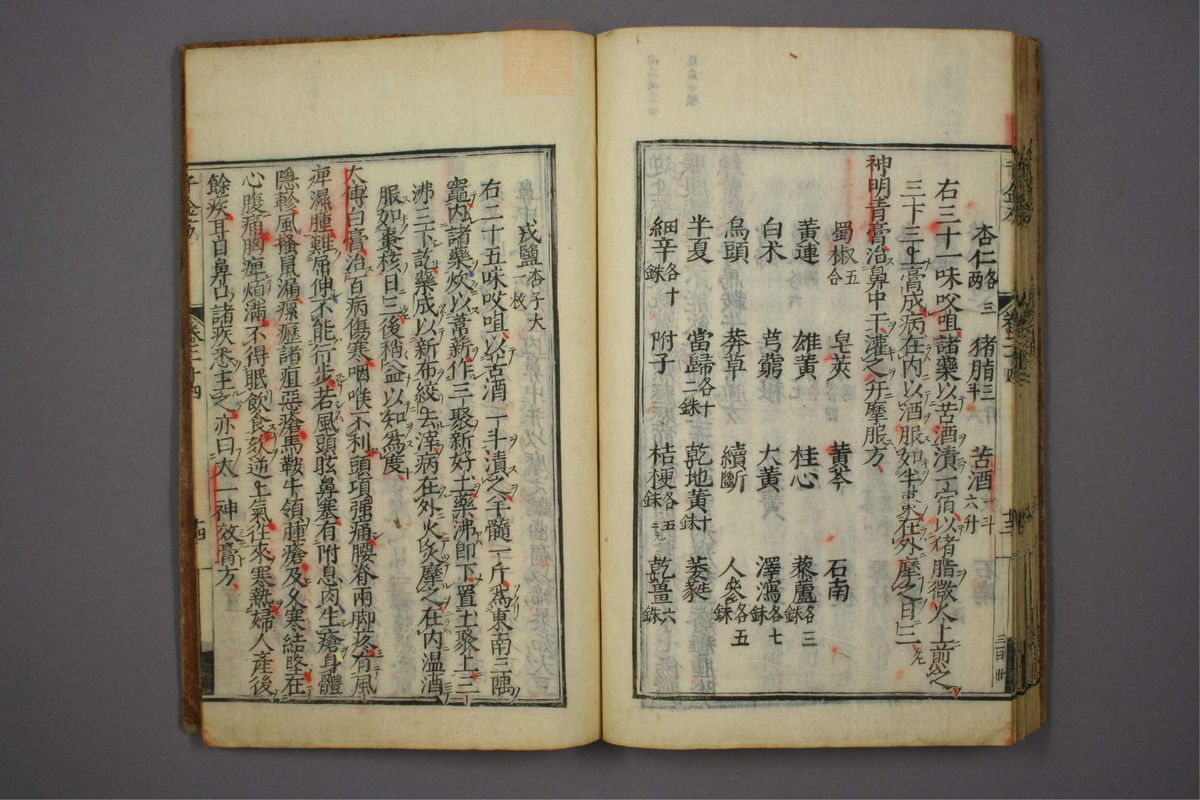 杏仁各三兩 猪脂三斤 苦酒一斗六升
右三十一味㕮咀諸藥以苦酒漬一宿以猪脂微火上煎之
三下三上膏成病在内以酒服如半棗在外摩之日三
神明青膏治鼻中干灌之并摩服方
蜀椒五合 皂莢 黄芩 石南
黄連 雄黄 桂心 藜蘆各三銖
白朮 芎藭 大黄 澤瀉各七銖
烏頭 莽草 續斷 人參各五銖
半夏 當歸各十二銖 乾地黄十銖 葳蕤
細辛各十銖 附子 桔梗各五銖 乾薑六銖
戎鹽杏子大一枚
右二十五味㕮咀以苦酒一斗漬之羊髓一斤爲東南三隅
竈内諸藥炊以葦新作三聚新好土藥沸即下置土聚上三
沸三下訖藥成以新布絞去滓病在外火炙摩之在内温酒
服如棗核日三後稍益以知爲度
太傅白膏治百病傷寒咽喉不利頭項强痛腰脊兩脚疼有風
痺濕腫難屈伸不能行步若風頭眩鼻塞有附息肉生瘡身體
隱軫風搔鼠漏瘰癧諸疽惡瘡馬鞍牛領腫瘡及久寒結堅在
心腹痛胸痺煩滿不得眠飲食欬逆上氣往來寒熱婦人産後
餘疾耳目鼻口諸疾悉主之亦曰太一神效膏方
千金方 卷二十四 十四